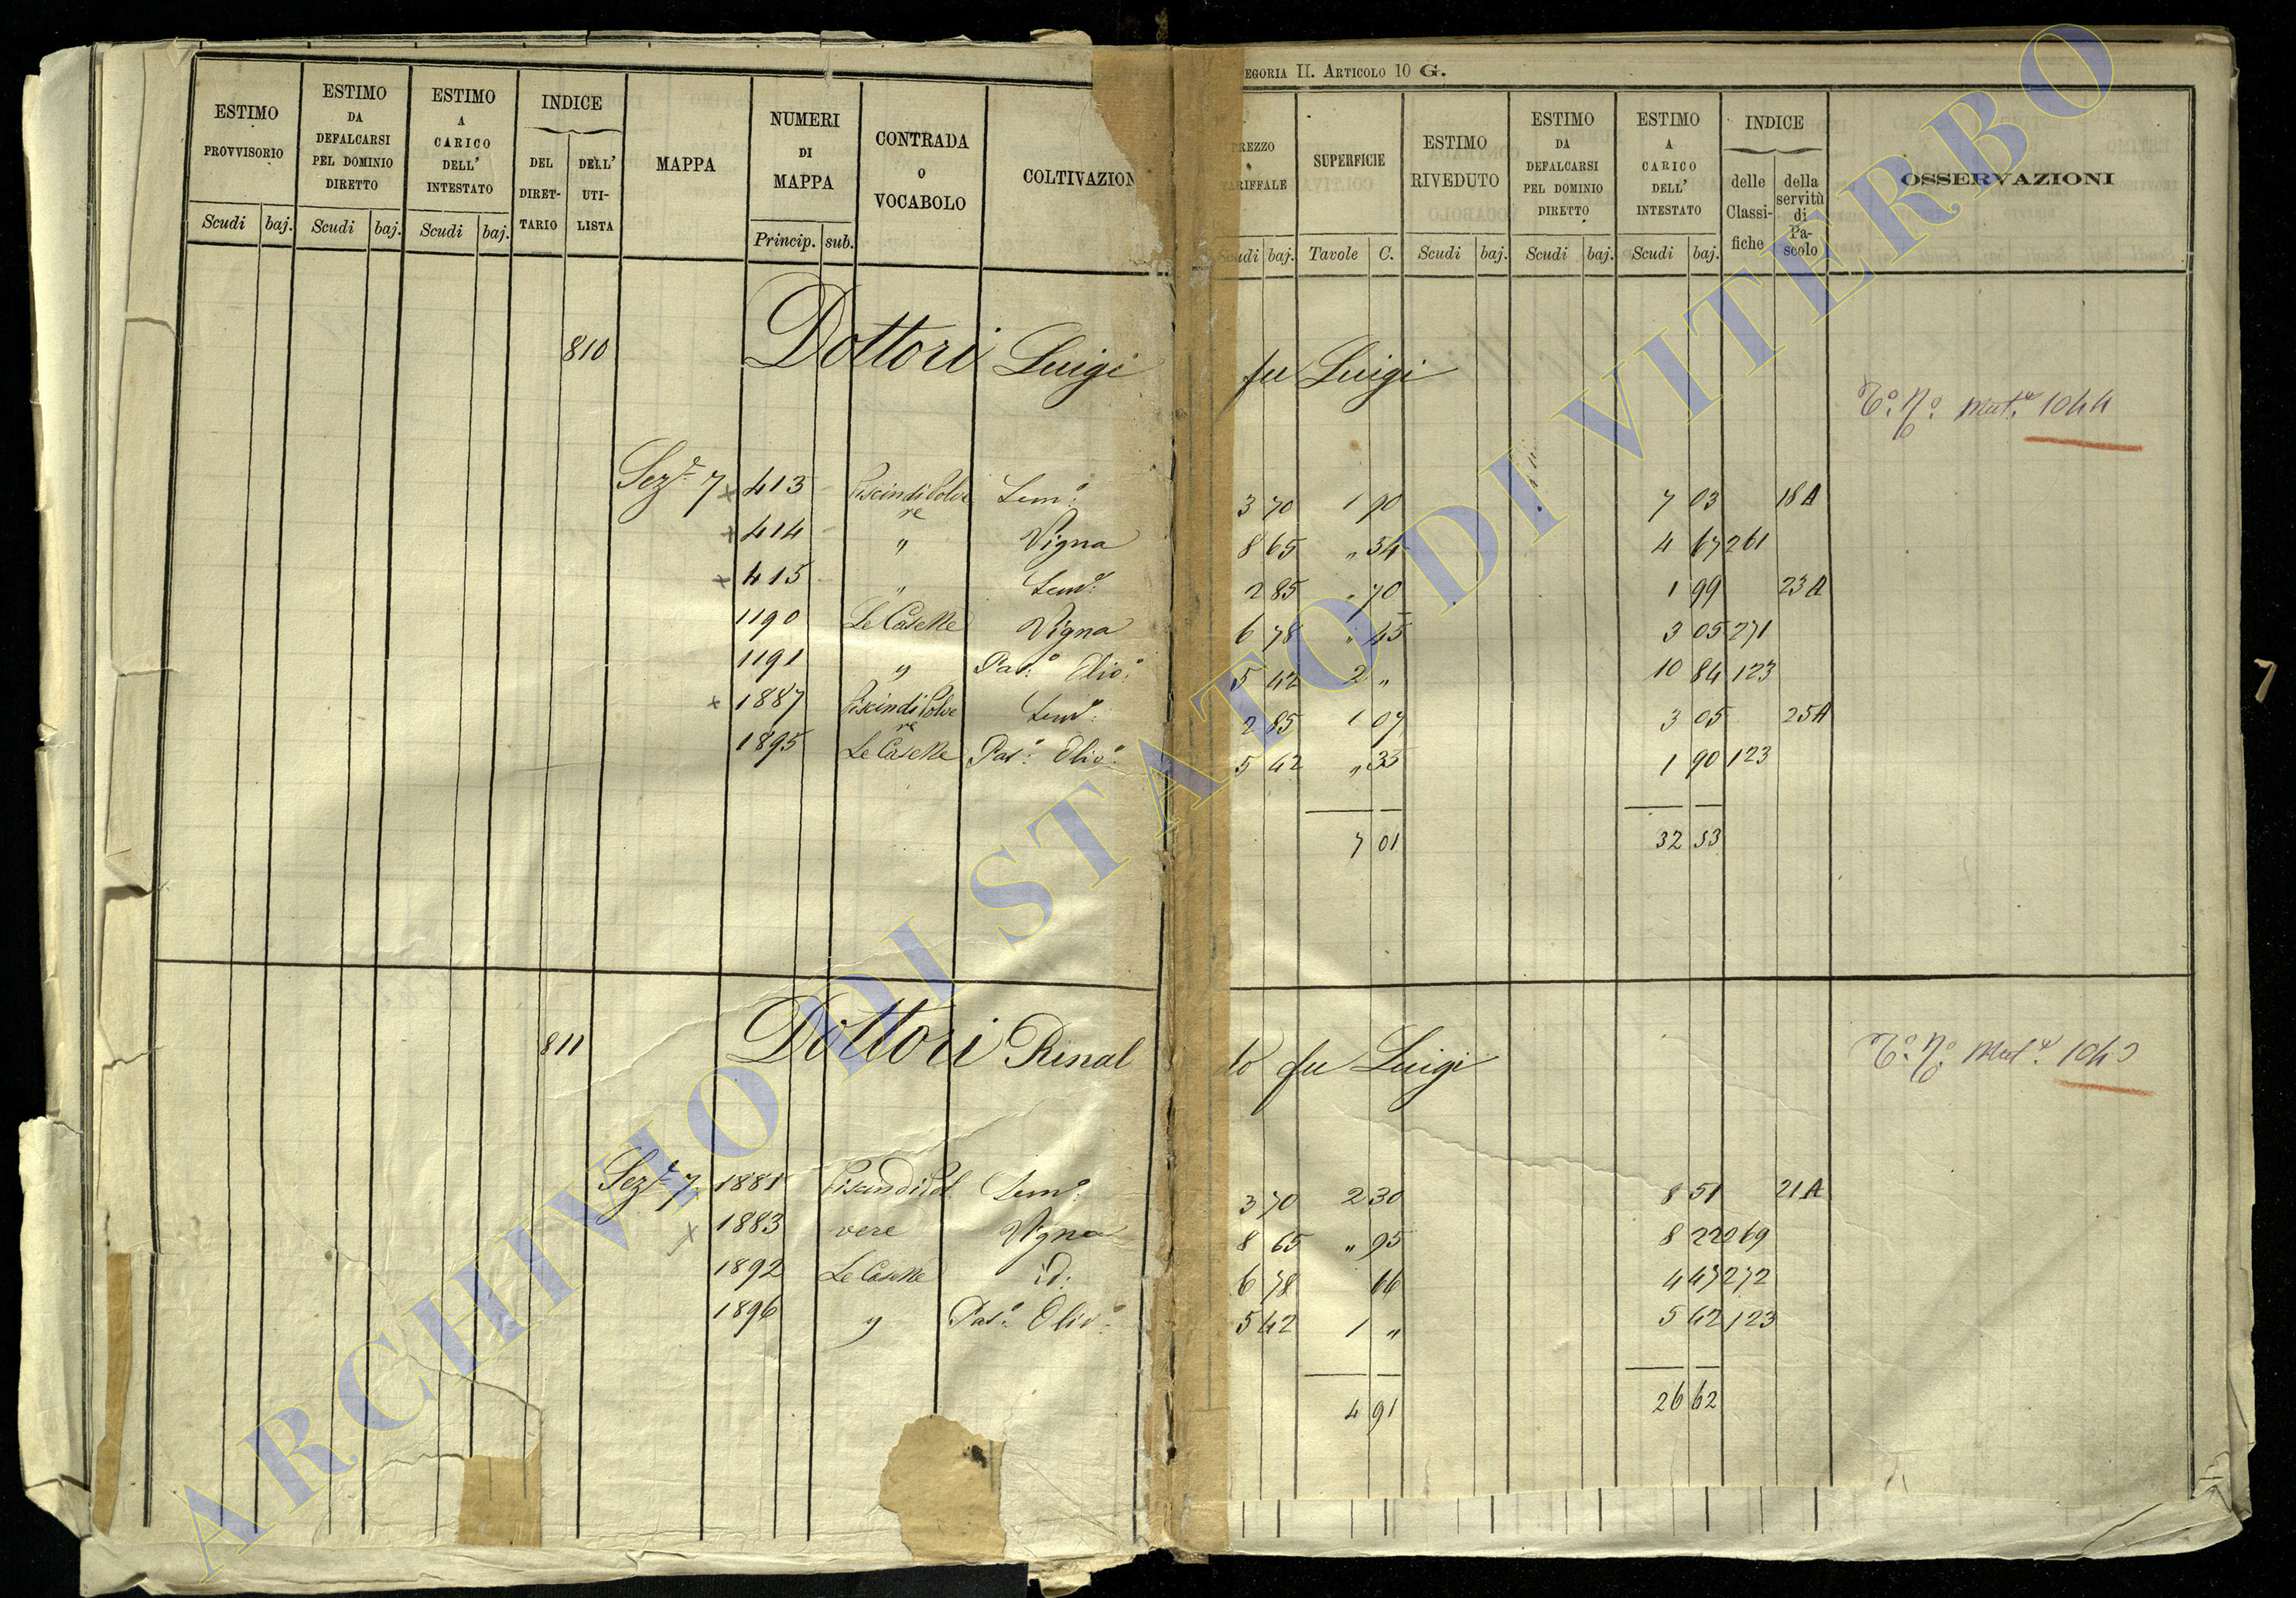 EGORIA II. ARTICOLO 10 G.
ESTIMO PROVVISORIO Scudi baj.
ESTIMO DA DEFALCARSI PEL DOMINIO DIRETTO Scudi baj.
ESTIMO A CARICO DELL' INTESTATO Scudi baj.
INDICE DEL DIRET- TARIO DELL' UTI- LISTA
MAPPA
NUMERI DI MAPPA Princip. sub.
CONTRADA O VOCABOLO
COLTIVAZION
PREZZO TARIFFALE Scudi baj.
SUPERFICIE Tavole C.
ESTIMO RIVEDUTO Scudi baj.
ESTIMO DA DEFALCARSI PEL DOMINIO DIRETTO Scudi baj.
ESTIMO A CARICO DELL' INTESTATO Scudi baj.
INDICE delle Classi- fiche della servitù di Pa- scolo
OSSERVAZIONI
810 Dottori Luigi fu Luigi
Mut.e 1044
Sez.e 7 x 413 Piscindi Polve Sem.o 3 70 1 90 7 03 18 A
re
x 414 " Vigna 8 65 " 54 4 67 261
x 415 " Sem.o 2 85 " 70 1 99 23 A
1190 Le Caselle Vigna 6 78 " 45 3 05 271
1191 " Pas.o Olio.o 5 42 2 " 10 84 123
x 1887 Piscindi Polve Sem.o 2 85 1 07 3 05 25 A
re
1895 Le Caselle Pas.o Olio.o 5 42 " 35 1 90 123
7 01 32 53
811 Dottori Rinal do fu Luigi
Mut.e
Sez.e 7 1881 Piscindi Pol Sem.o 3 70 2 30 8 51 21 A
x 1883 vere Vigna 8 65 " 95 8 22 269
1892 Le Caselle id. 6 78 66 4 47 272
1896 " Pas.o Olio.o 5 42 1 " 5 42 123
4 91 26 62
7
ARCHIVIO DI STATO DI VITERBO